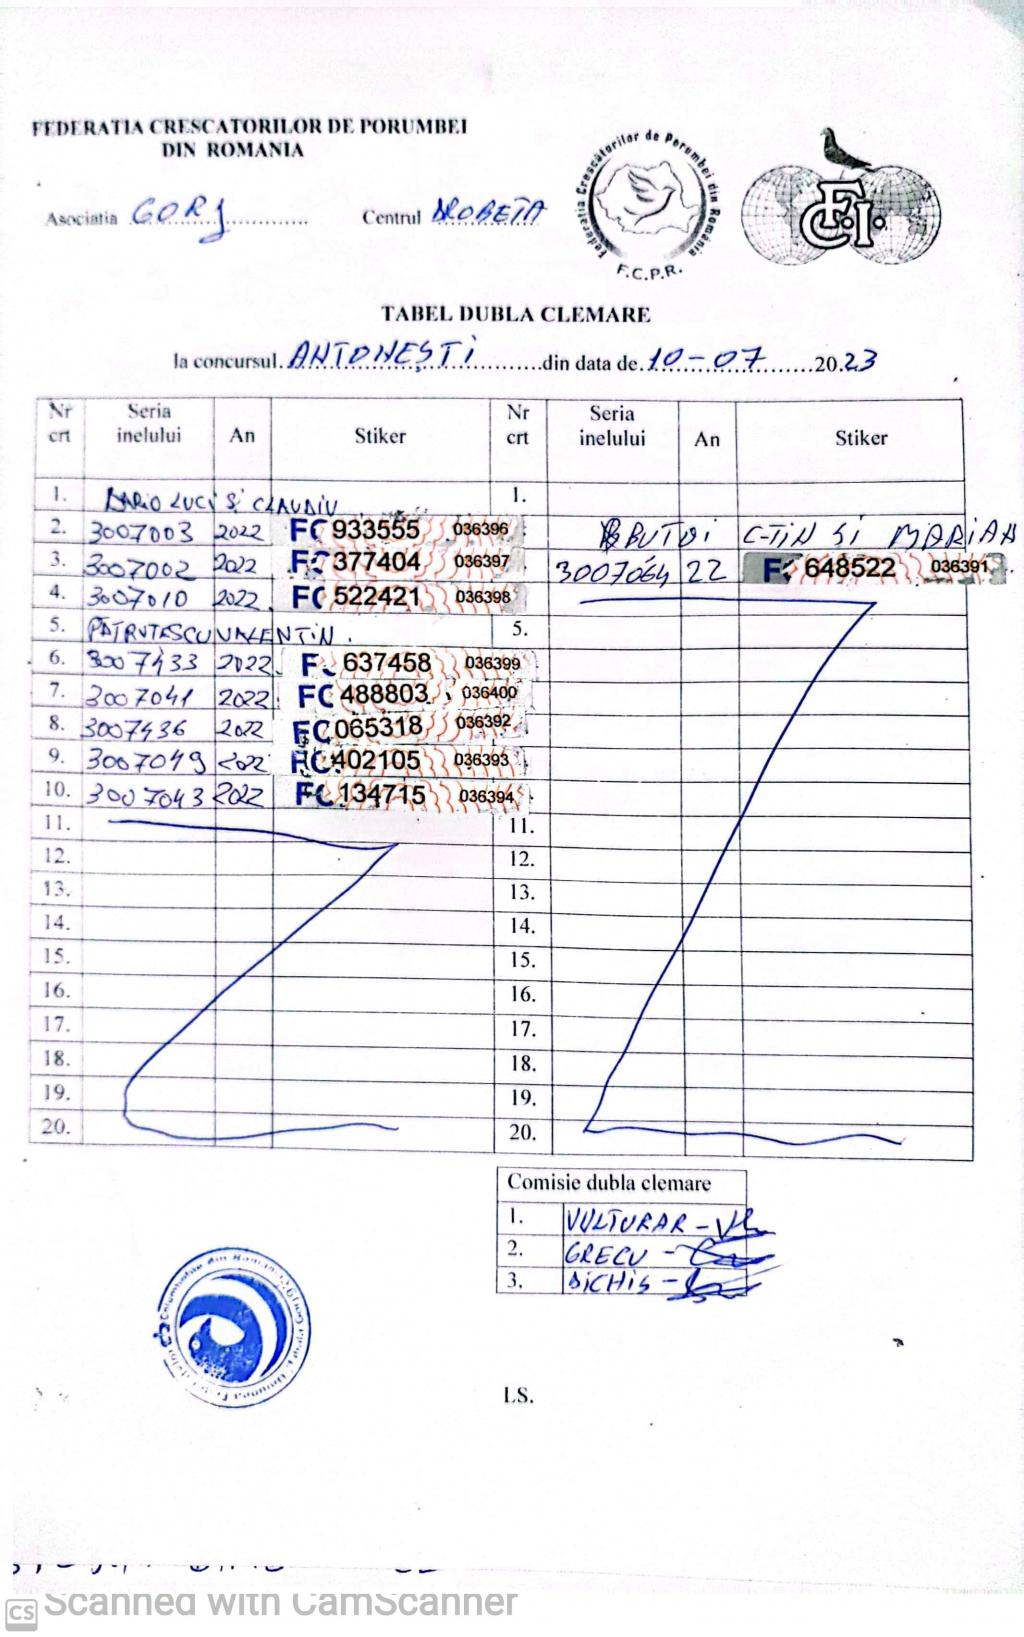 FEDERATIA CRESCATORILOR DE PORUMBEI
DIN ROMANIA
Asociatia GORJ Centrul DROBETA
Federatia Crescătorilor de Porumbei din România
F.C.P.R.
F.C.I.
TABEL DUBLA CLEMARE
la concursul ANTONEȘTI din data de 10-07 2023
Nr crt Seria inelului An Stiker Nr crt Seria inelului An Stiker
1. DARIO LUCI ȘI CLAUDIU 1.
2. 3007003 2022 FC 933555 036396 BRUTOI C-TIN SI MARIAN
3. 3007002 2022 377404 036397 3007064 22 648522 036391
4. 3007010 2022 FC 522421 036398
5. PĂTRUTESCU VALENTIN. 5.
6. 3007433 2022 637458 036399
7. 3007041 2022 FC 488803 036400
8. 3007436 2022 FC 065318 036392
9. 3007049 2022 FC 402105 036393
10. 3007043 2022 FC 134715 036394
11. 11.
12. 12.
13. 13.
14. 14.
15. 15.
16. 16.
17. 17.
18. 18.
19. 19.
20. 20.
Comisie dubla clemare
1. VULTURAR -
2. GRECU -
3. DICHIS -
LS.
CS Scanned with CamScanner